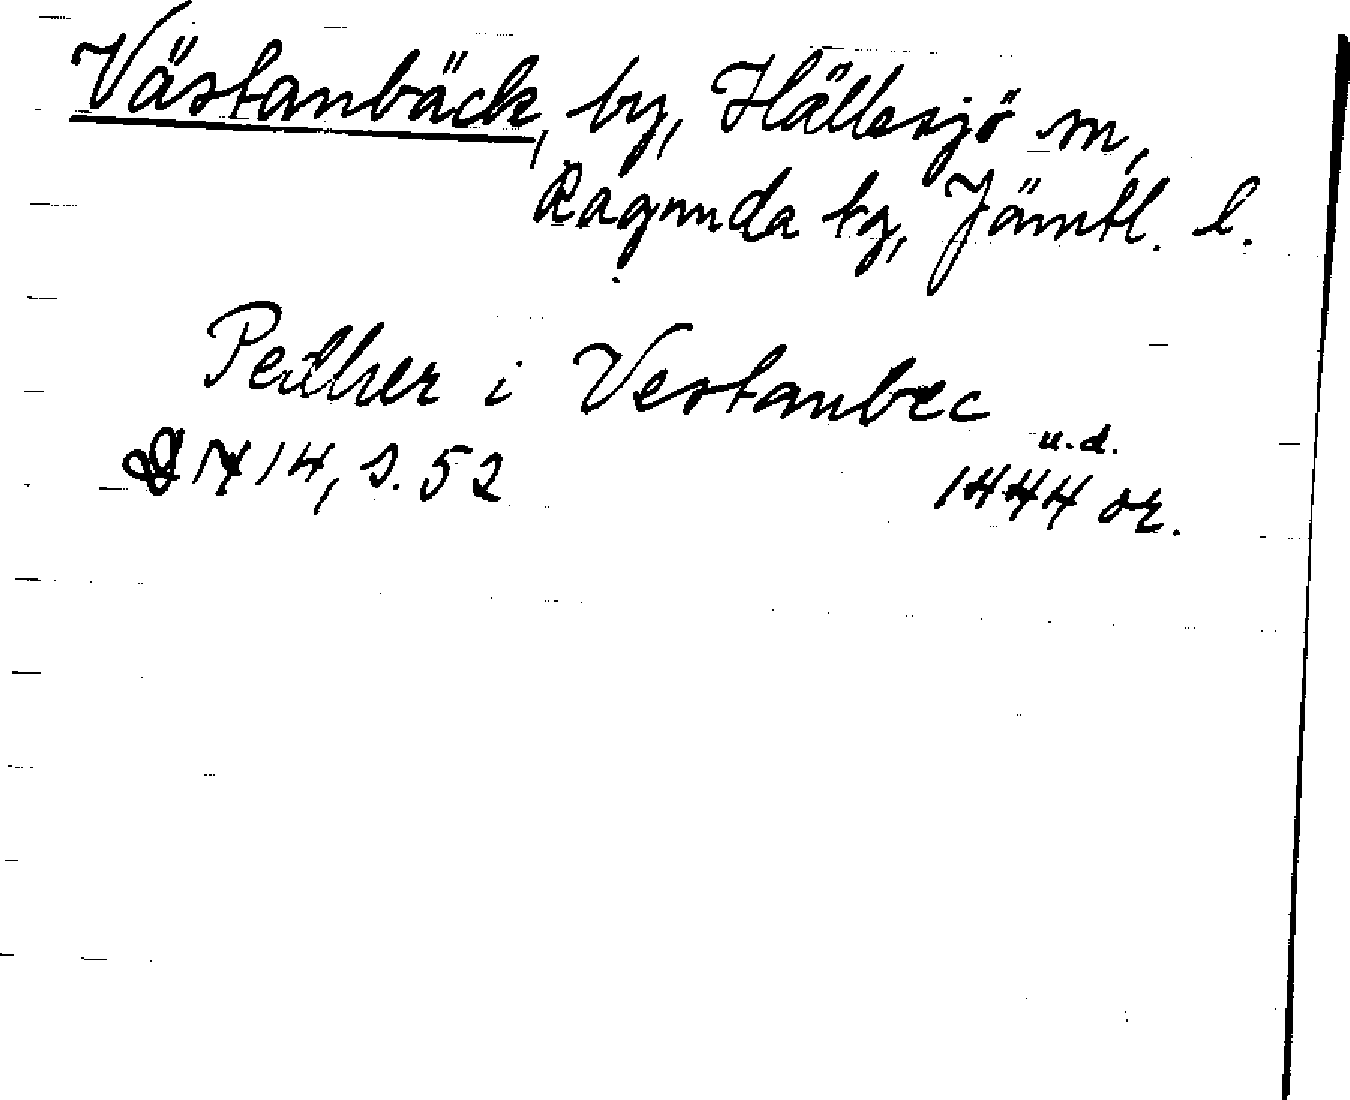 Västanbäck, by, Hällesjö sn,
Ragunda tg, Jämtl. l.
Pedher i Vestanbec
u.d.
14, s. 52 1444 or.